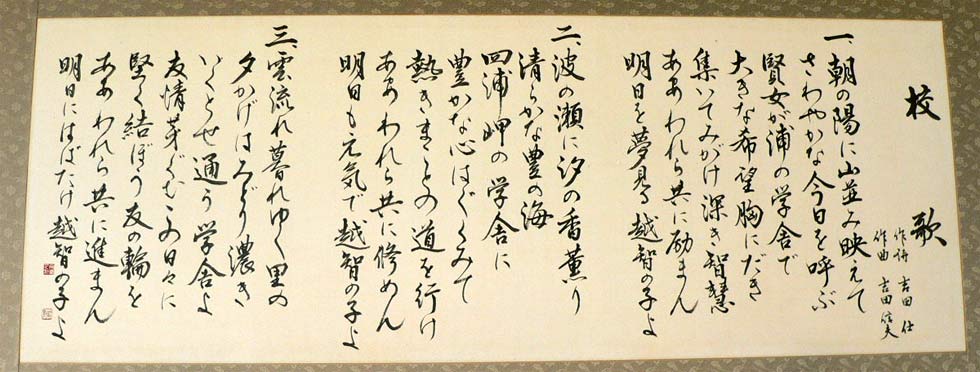 校歌
作詩 吉田 仕
作曲 吉田 信夫
一、朝の陽に山並み映えて
さわやかな今日を呼ぶ
賢女が浦の学舎で
大きな希望胸にだき
集いてみがけ深き智慧
ああわれら共に励まん
明日を夢見る越智の子よ
二、波の瀬に汐の香薫り
清らかな豊の海
四浦岬の学舎に
豊かな心はぐくみて
熱きまことの道を行け
ああわれら共に修めん
明日も元気で越智の子よ
三、雲流れ暮れゆく里の
夕かげはみどり濃き
いくとせ通う学舎よ
友情芽ぐむこの日々に
堅く結ぼう友の輪を
ああわれら共に進まん
明日にはばたけ越智の子よ